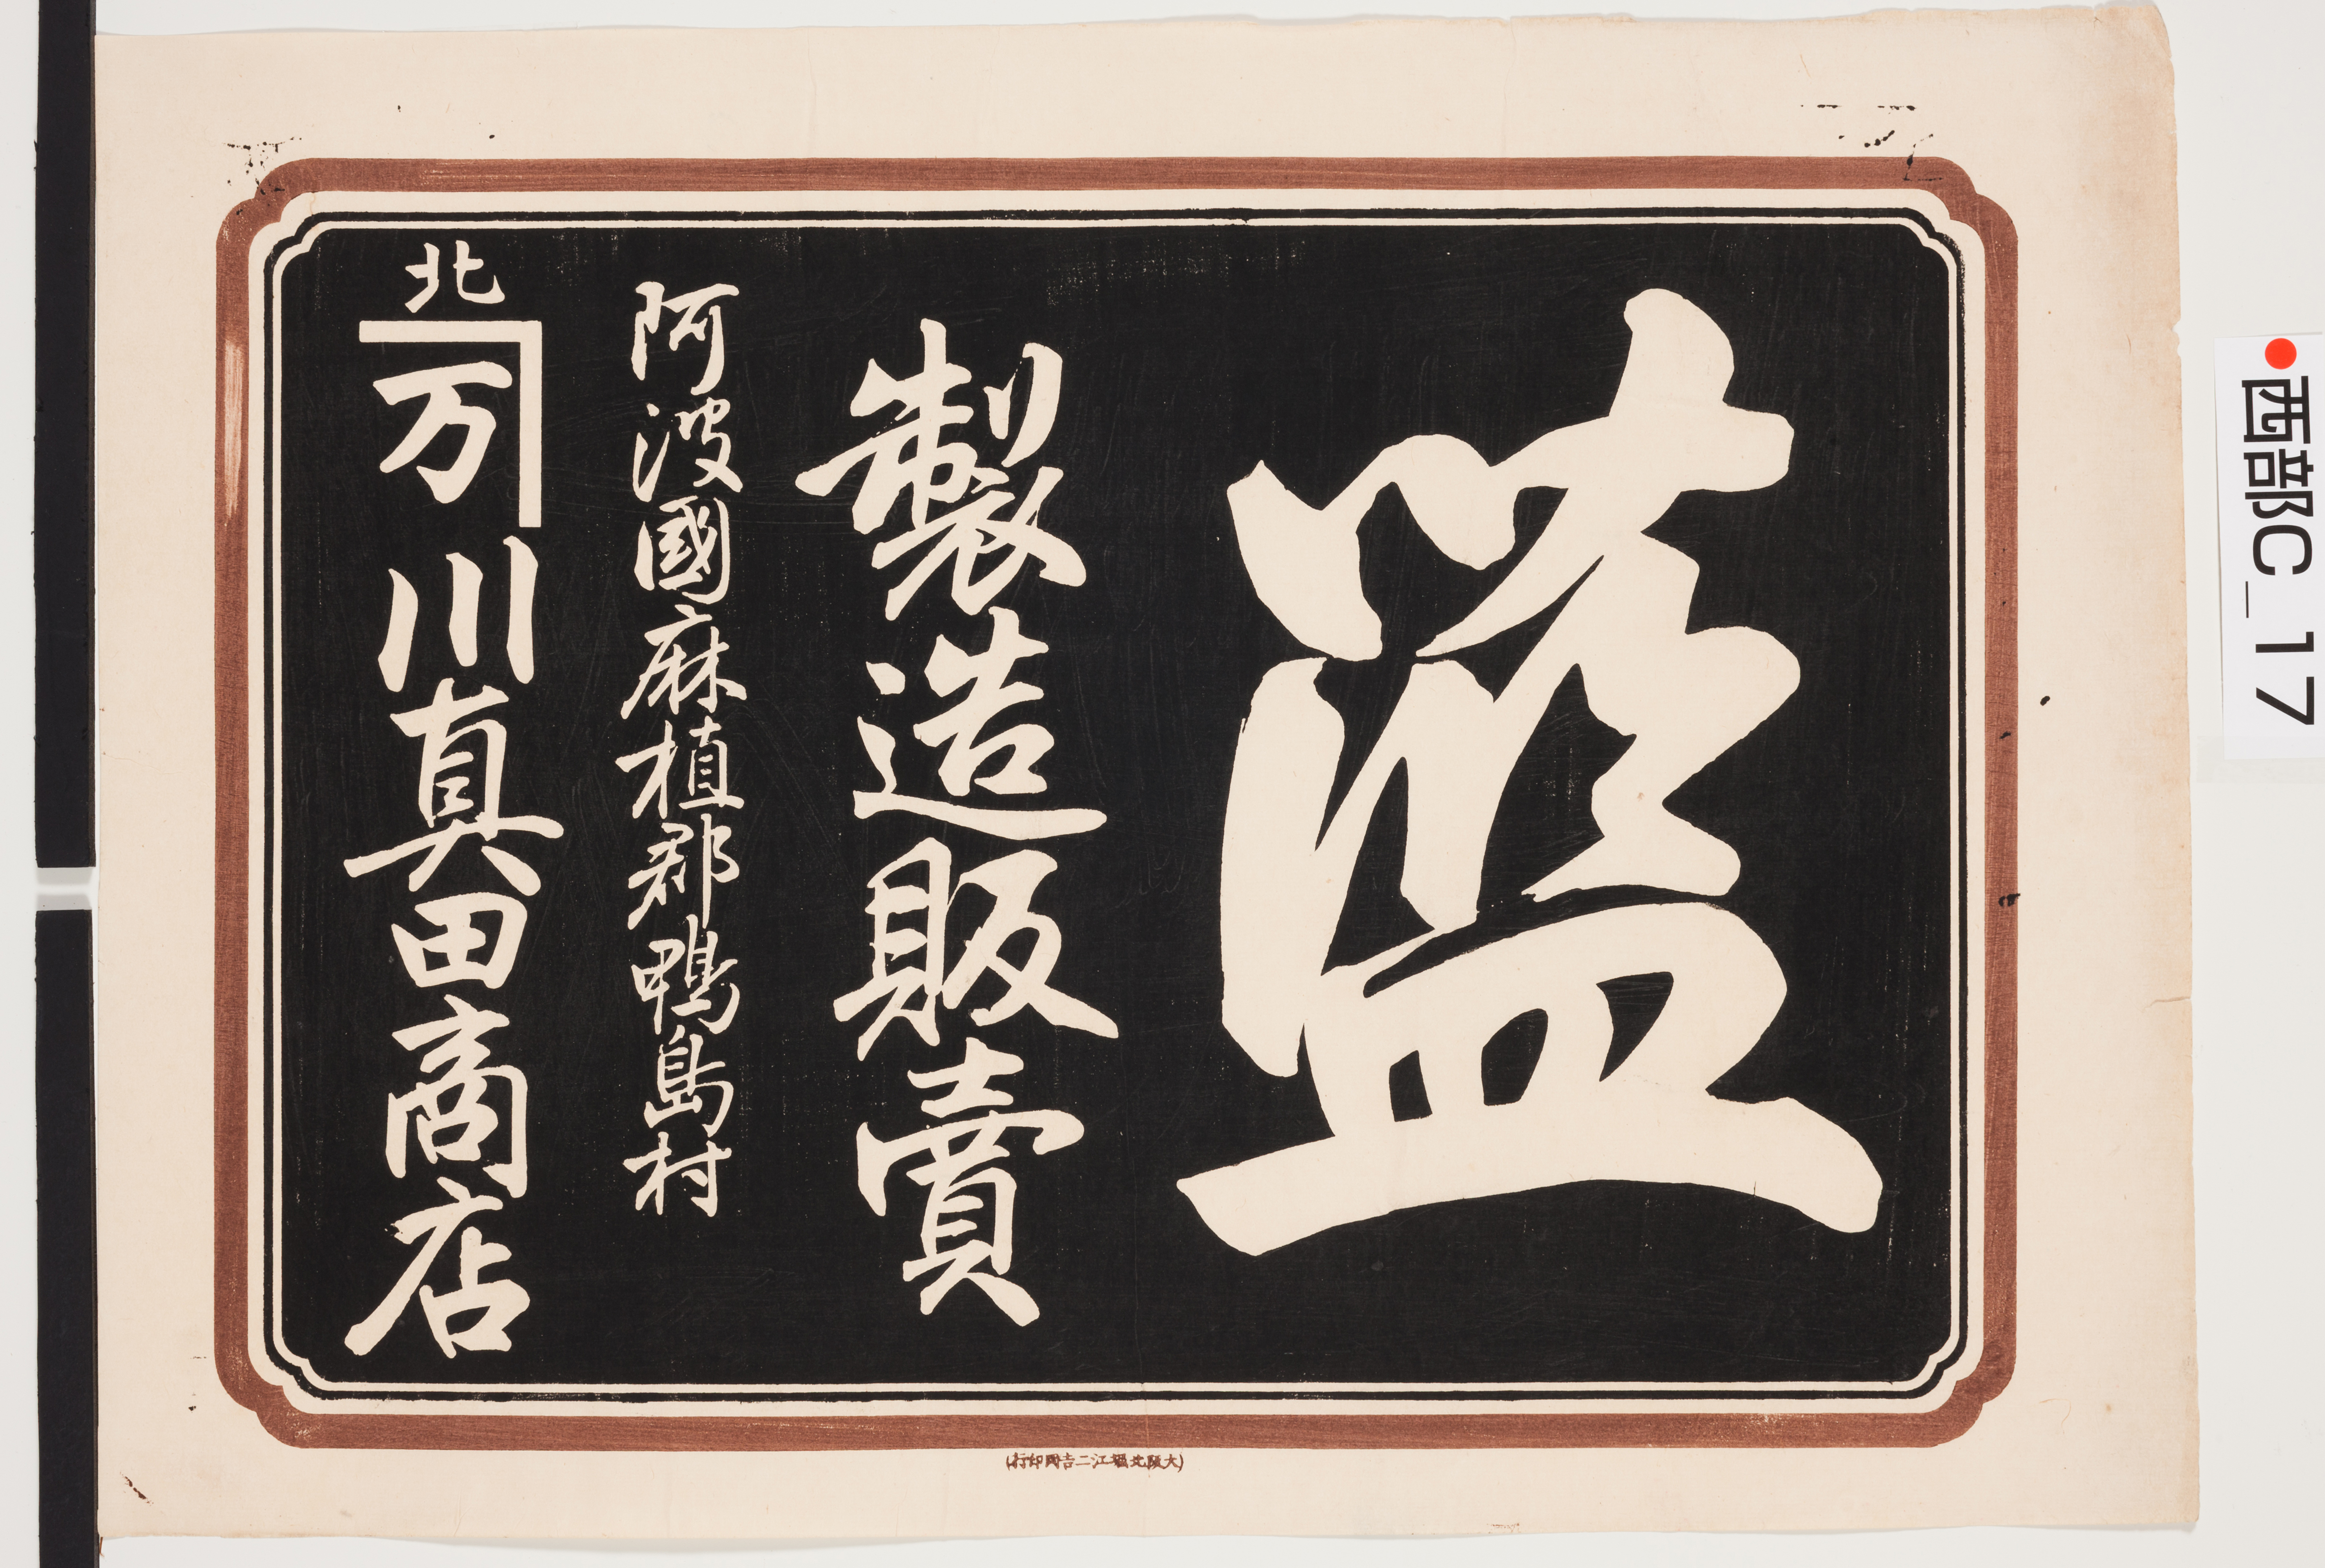 藍
製造販賣
阿波國麻植郡鴨島村
北
万
川真田商店
(大阪北堀江二吉岡印行)
西部C_17